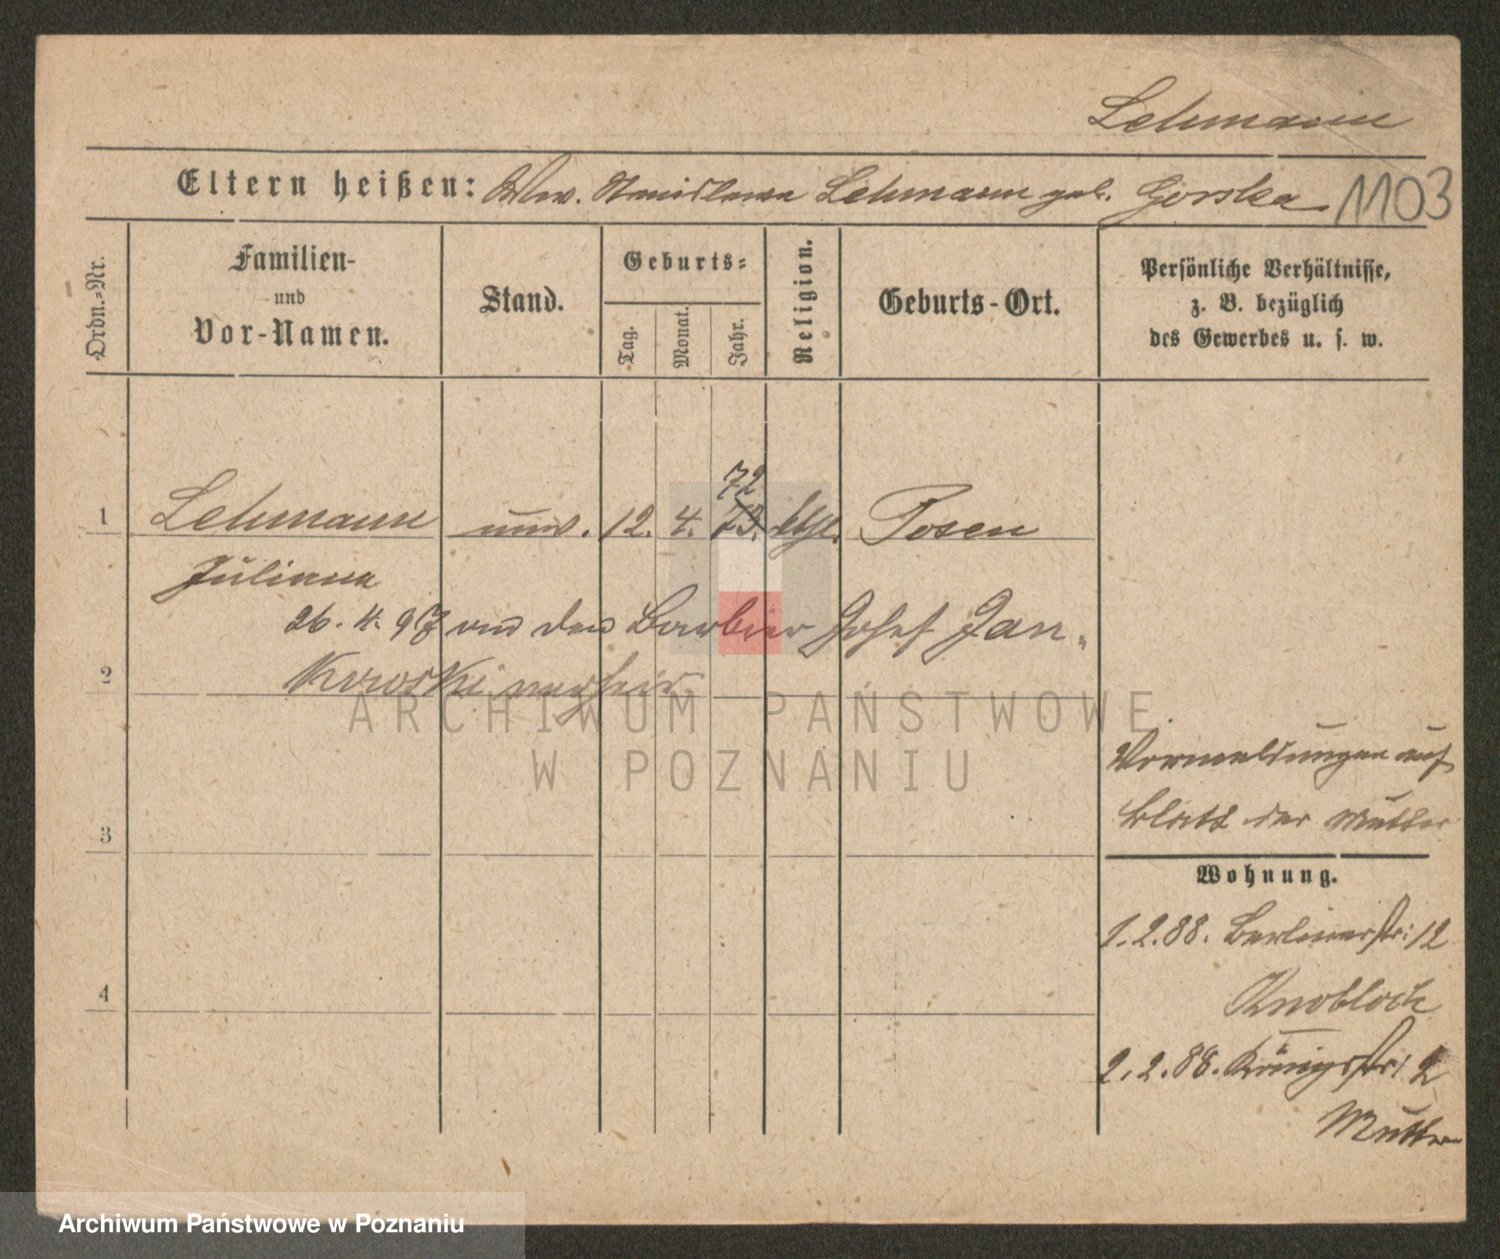 Lehmann
Eltern heißen: Ww. Stanislawa Lehmann geb. Gorska
1103
Ordn.-Nr.
Familien-
und
Vor-Namen.
Stand.
Geburts-
Tag.
Monat.
Jahr.
Religion.
Geburts-Ort.
Persönliche Verhältnisse,
z. B. bezüglich
des Gewerbes u. s. w.
72
1 Lehmann unv. 12. 4. 73. kthl. Posen
Julianna
26. 4. 97 an den Barbier Josef Jan-
2 kowski verheir
ARCHIWUM PAŃSTWOWE
W POZNANIU
Vormeldungen auf
Blatt der Mutter
3
Wohnung.
1.2.88. Berlinerstr: 12
Knobloch
4
2.2.88. Königsstr: 2
Mutter
Archiwum Państwowe w Poznaniu